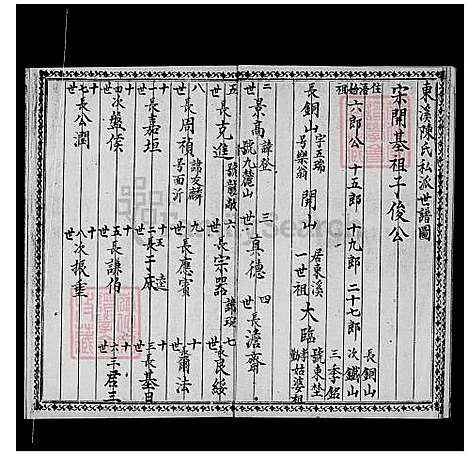 東溪陳氏私派世譜圖
宋開基祖子俊公
住潘始祖
六郎公 十五郎 十九郎 二十七郎
長銅山
次鐵山
三季銘
長銅山 字五瑞 号樂翁 開山 居東溪 一世祖 大臨 號東埜
二世 景高 諱登 號九麓山 三世 真德 四世 長澹齋
五世 長克進 號龍敵 六世 長宗器 諱琬 七世 長良綏
八世 長周禎 諱友麟 号面沂 九世 長應賓 十世 長爾法
十一世 長嘉垣 十二世 長于床 十三世 長基日
十四世 次盤俟 十五世 長謙伯 十六世 三君三
十七世 長公潤 十八世 次振重